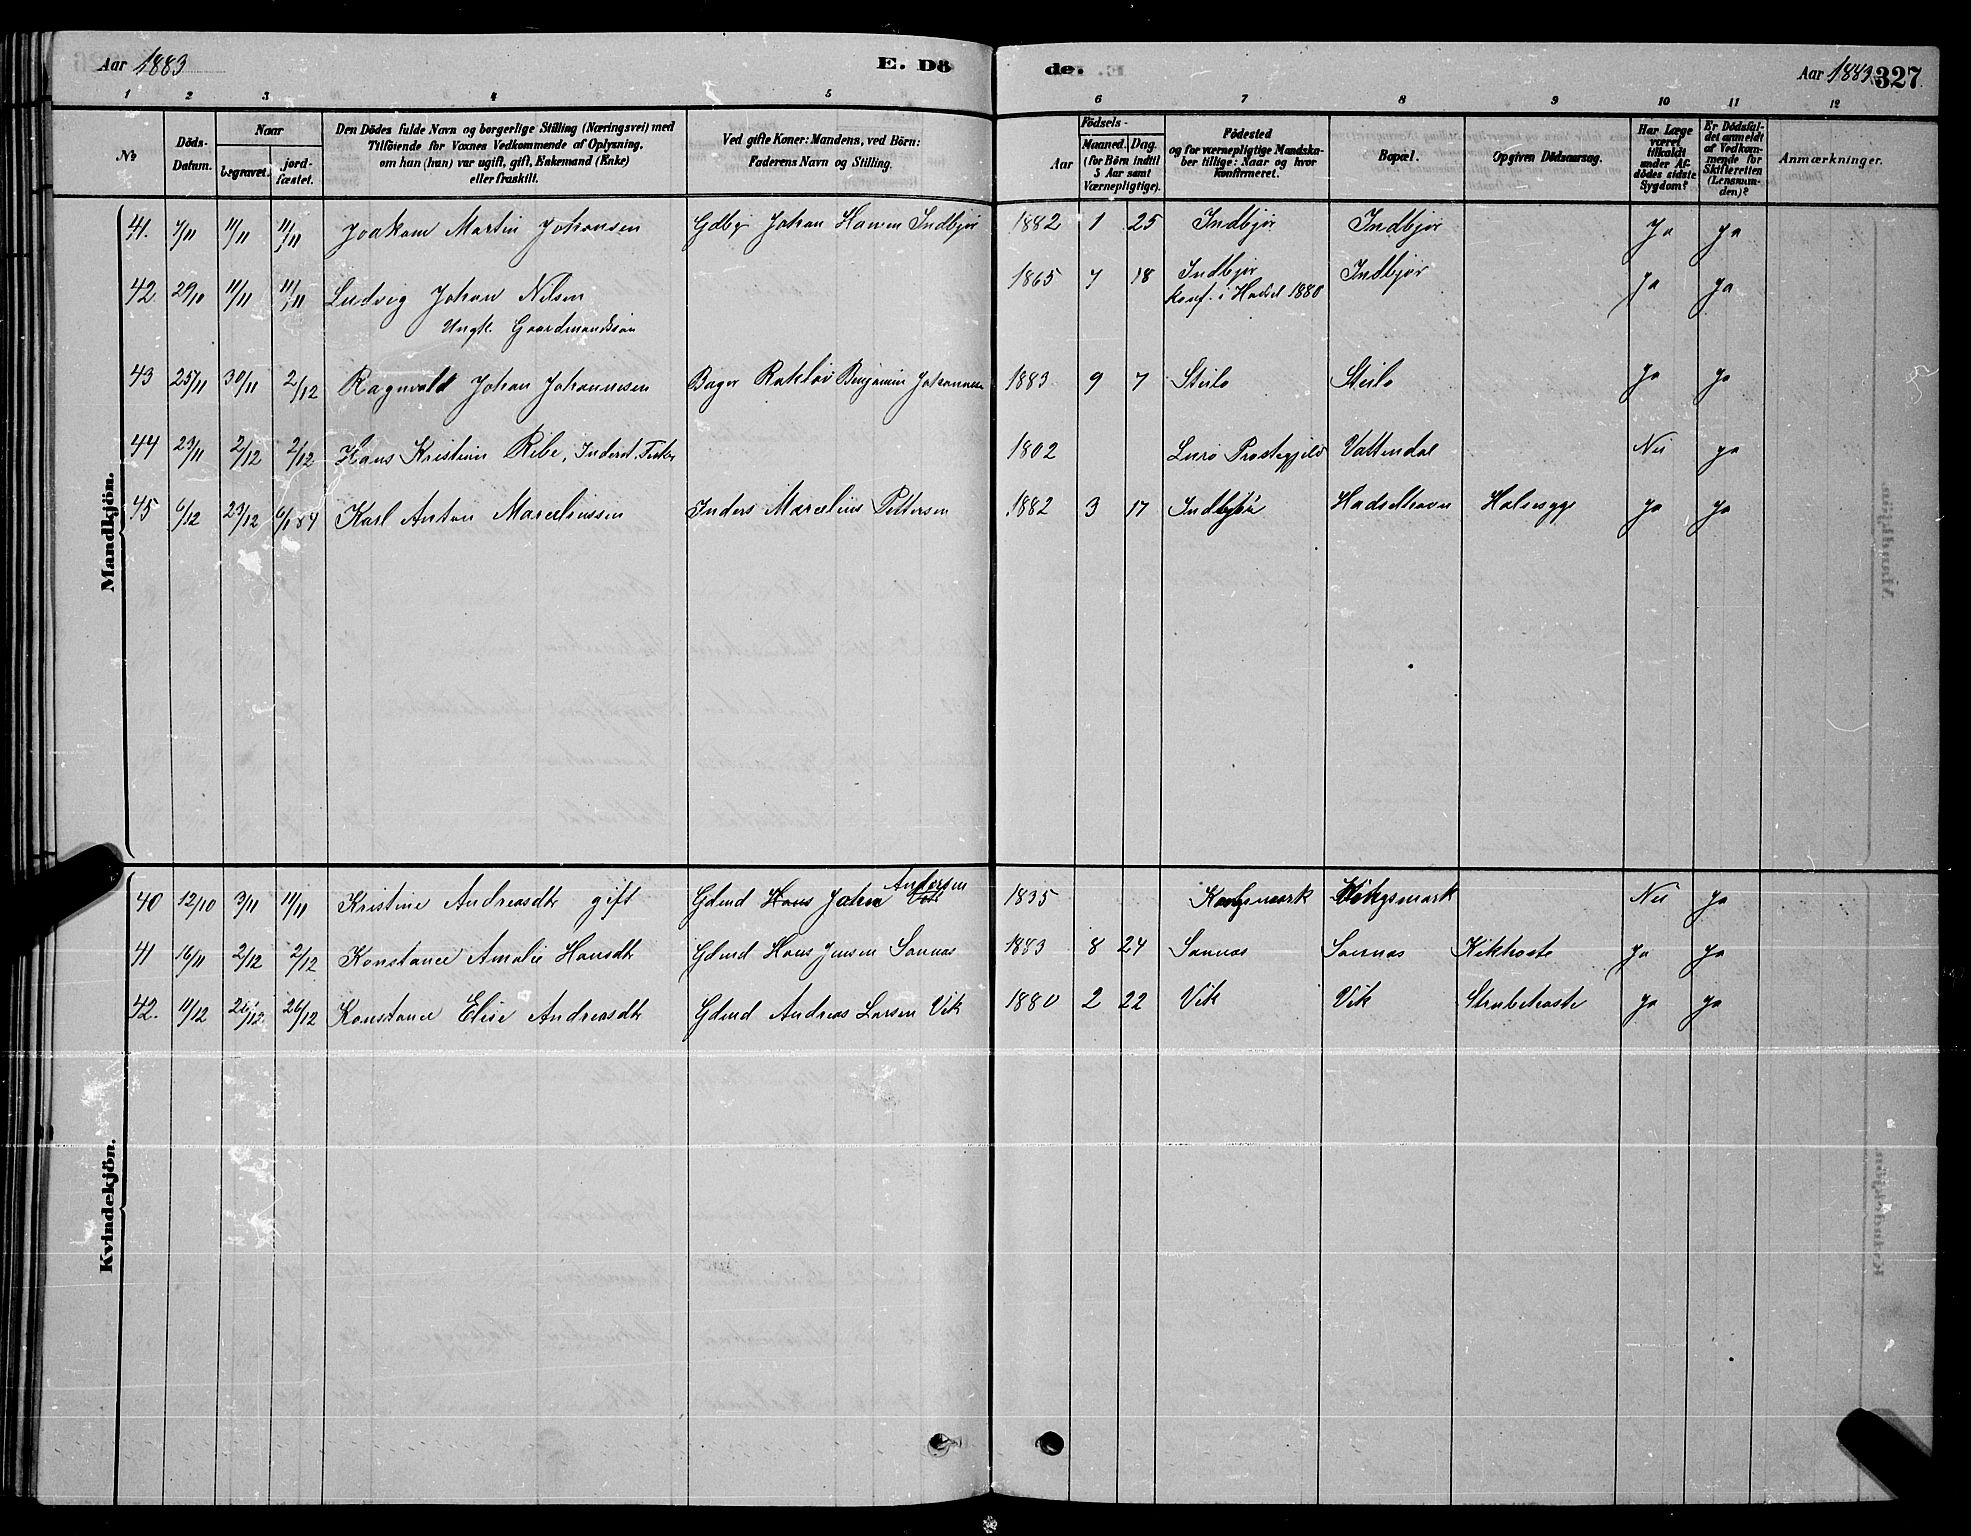 Aar 1883 E. Dö
de. Aar 1883 327
1 2 3 4 5 6 7 8 9 10 11 12
No
Döds-Datum.
Naar
begravet. jord-fæstet.
Den Dödes fulde Navn og borgerlige Stilling (Næringsvei) med
Tilföiende for Voxnes Vedkommende af Oplysning,
om han (hun) var ugift, gift, Enkemand (Enke)
eller fraskilt.
Ved gifte Koner: Mandens, ved Börn:
Faderens Navn og Stilling.
Födsels-
Aar Maaned. Dag.
(for Börn indtil
5 Aar samt
Værnepligtige).
Födested
og for værnepligtige Mandska-
ber tillige: Naar og hvor
konfirmeret.
Bopæl.
Opgiven Dödsaarsag.
Har Læge
været
tilkaldt
under Af-
dödes sidste
Sygdom?
Er Dödsfal-
det anmeldt
af Vedkom-
mende for
Skifteretten
(Lensman-
den)?
Anmærkninger.
Mandkjön.
41. 7/11 11/11 11/11 Joakam Martin Johansen Gdbr Johan Hansen Indbjör 1882 1 25 Indbjör Indbjör Ja ja
42 29/10 11/11 11/11 Ludvig Johan Nilsen 1865 7 18 Indbjör Indbjör ja ja
Ungk. Gaardmandssön konf. i Hadsel 1880
43 25/11 30/11 2/12 Ragnvald Johan Johannesen Bager Benjamin Johannesen 1883 9 7 Steilo Steilo ja ja
44 23/11 2/12 2/12 Hans Kristian Ribe, Inderst. 1802 Lurö Prestegjeld Vattendal Nei ja
45 6/12 23/12 6/1 84 Karl Anton Marceliussen Inders Marcelius Pettersen 1882 3 17 Indbjör Hadselhavn Halssyge ja ja
Kvindekjön.
40 12/10 3/11 11/11 Kristine Andreasdtr gift Gdmd Hans Johan Vik Andersen 1835 Kongsmark Kongsmark Nei ja
41 16/11 2/12 2/12 Konstance Amalie Hansdtr Gdmd Hans Jensen Sannas 1883 8 24 Sannas Sannas Kikhoste ja ja
42. 11/12 26/12 26/12 Konstance Elise Andreasdtr Gdmd Andreas Larsen Vik 1880 2 22 Vik Vik Strubehoste ja ja